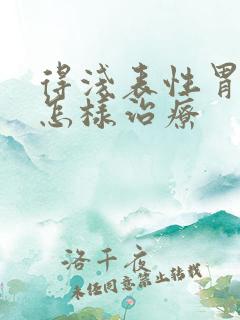 得浅表性胃
怎样治疗
洛千夜
未经同意禁止转载